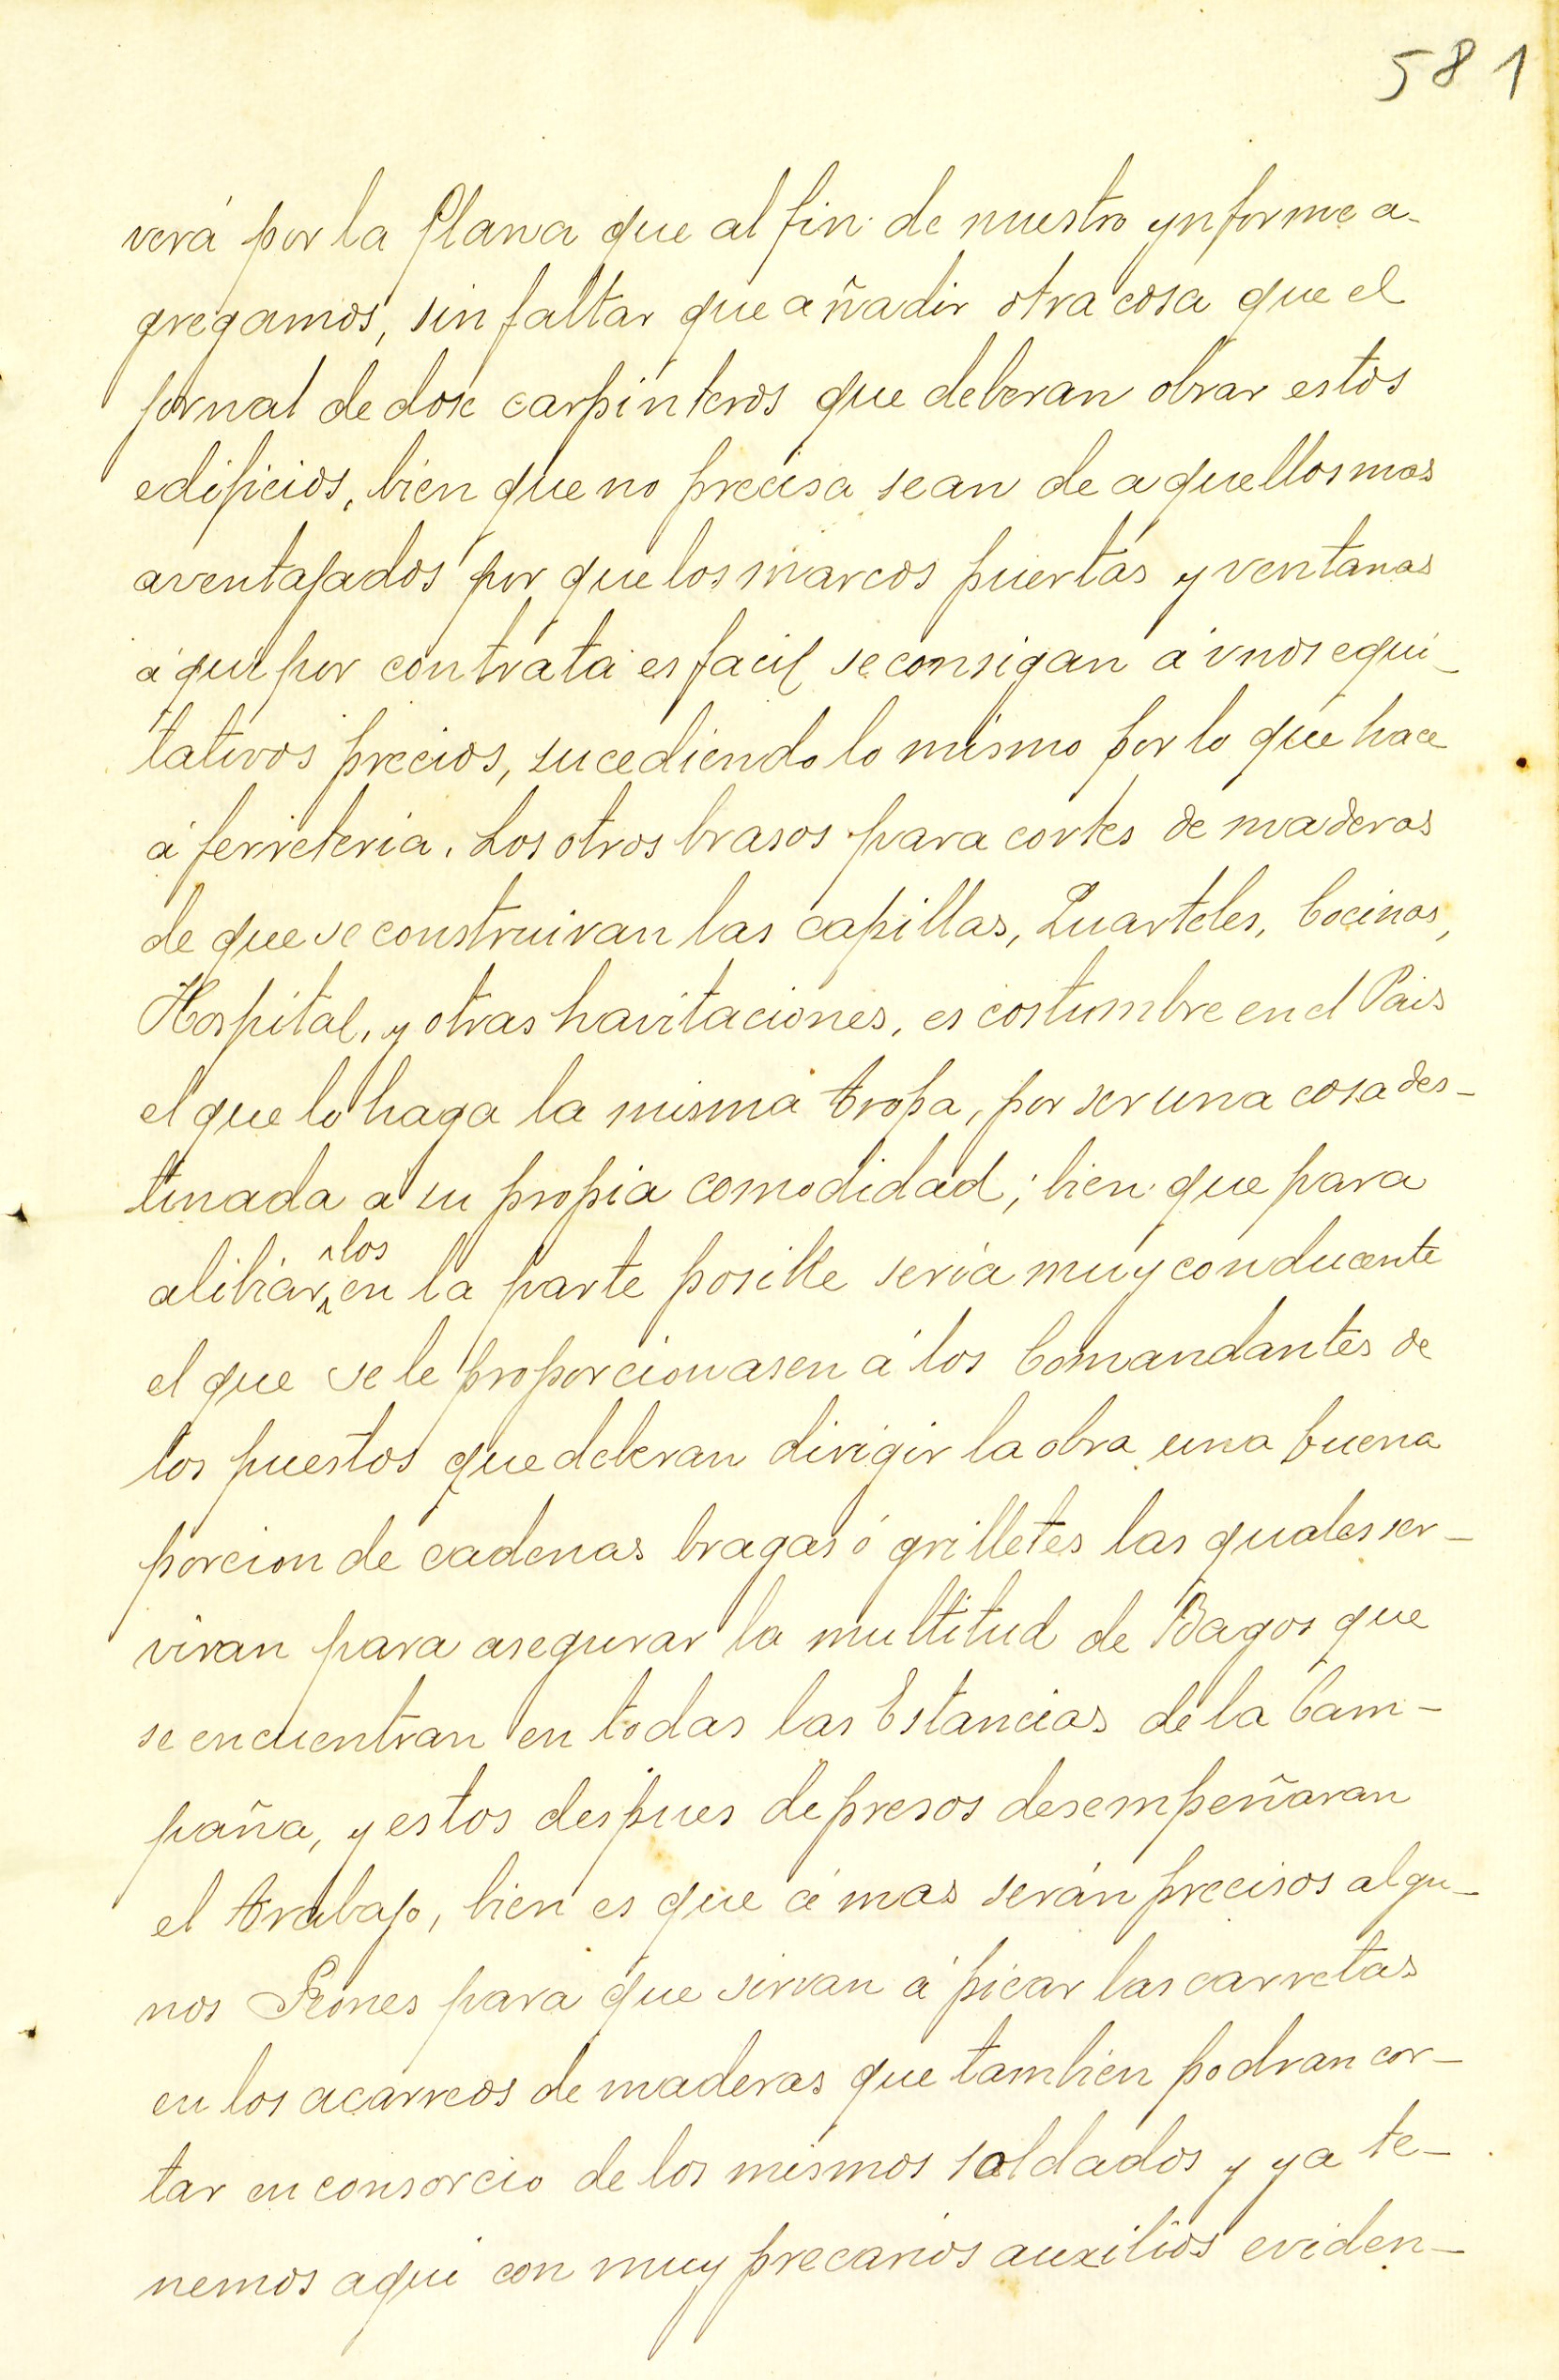 581
verá por la Plana que al fin de nuestro ynforme a-
gregamos, sin faltar que añadir otra cosa que el
jornal de dose carpinteros que deberan obrar estos
edificios, bien que no precisa sean de aquellos mas
aventajados por que los marcos puertas y ventanas
áqui por contrata es facil se consigan á vnos equi-
tativos precios, sucediendo lo mismo por lo que hace
á ferreteria. Los otros brasos para cortes de maderas
de que se construiran las capillas, Quarteles, Cocinas,
Hospital, y otras havitaciones, es costumbre en el Pais
el que lo haga la misma tropa, por ser una cosa des-
tinada á su propia comodidad; bien que para
alibiar los en la parte posible seria muy conducente
el que se le proporcionasen á los Comandantes de
los puestos que deberan dirigir la obra una buena
porcion de cadenas bragas ó grilletes las quales ser-
viran para asegurar la multitud de Bagos que
se encuentran en todas las Estancias de la Cam-
paña, y estos despues de presos desempeñaran
el trabajo, bien es que á mas serán precisos algu-
nos Peones para que sirvan á picar las carretas
en los acarreos de maderas que tambien podran cor-
tar en consorcio de los mismos soldados y ya te-
nemos aqui con muy precarios auxilios eviden-